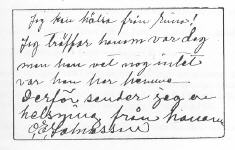 Jag kan hälsa från Einar!
Jag träffar honom var dag
men han vet nog intet
var han har hemma
Derför sender jag en
helsning från honom